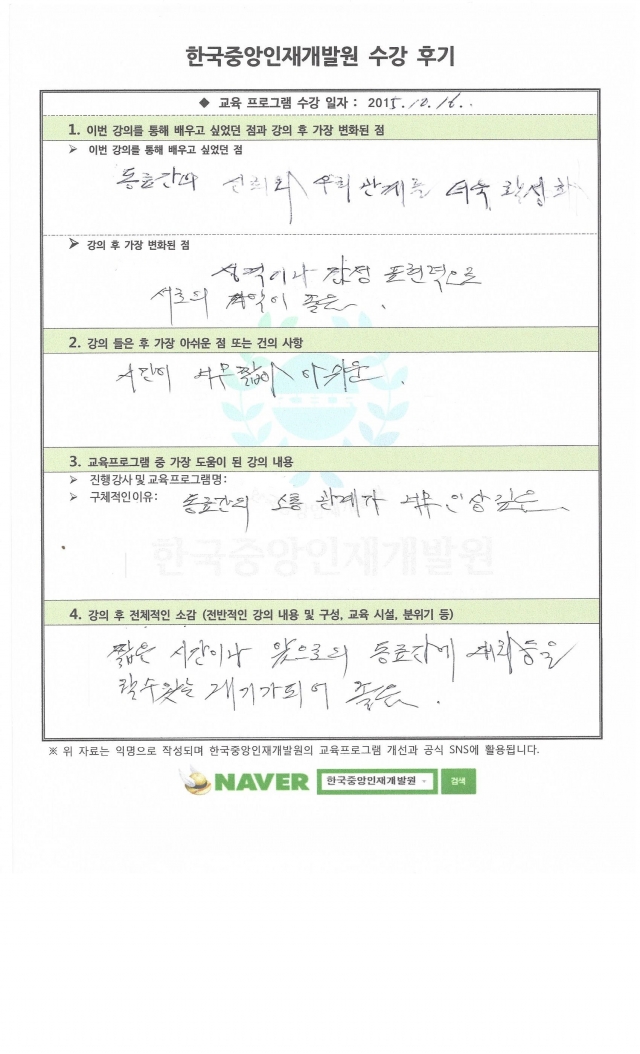 한국중앙인재개발원 수강 후기
◆ 교육 프로그램 수강 일자 : 2015.10.16..
1. 이번 강의를 통해 배우고 싶었던 점과 강의 후 가장 변화된 점
➤ 이번 강의를 통해 배우고 싶었던 점
동료간의 신뢰와 우회 관계를 더욱 활성화
➤ 강의 후 가장 변화된 점
성격이나 감정 표현력으로
서로의 좋은.
2. 강의 들은 후 가장 아쉬운 점 또는 건의 사항
시간이 너무 짧아 아쉬운.
3. 교육프로그램 중 가장 도움이 된 강의 내용
➤ 진행강사 및 교육프로그램명 :
➤ 구체적인이유 : 동료간의 소통 관계가 너무 인상 깊은
한국중앙인재개발원
4. 강의 후 전체적인 소감 (전반적인 강의 내용 및 구성, 교육 시설, 분위기 등)
짧은 시간이나 앞으로의 동료간에 등을
할수있는 계기가되어 좋은.
※ 위 자료는 익명으로 작성되며 한국중앙인재개발원의 교육프로그램 개선과 공식 SNS에 활용됩니다.
NAVER 한국중앙인재개발원 검색